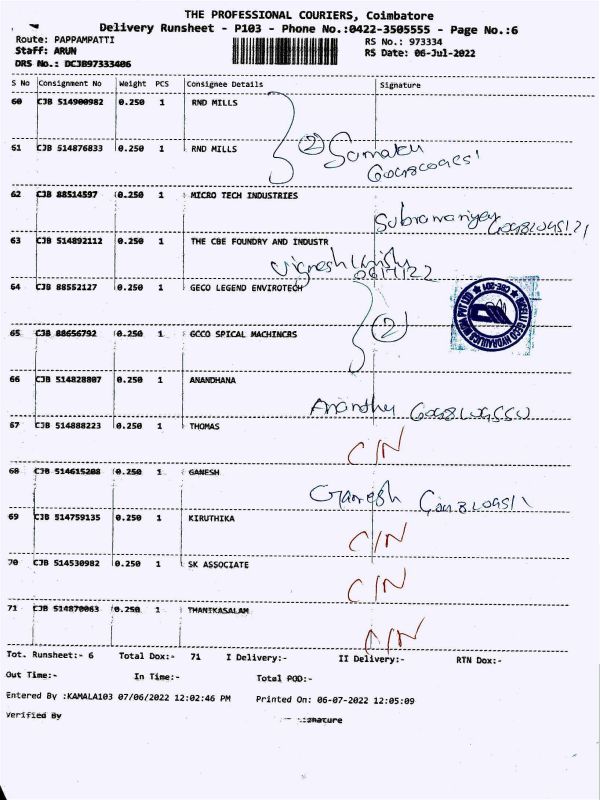 THE PROFESSIONAL COURIERS, Coimbatore
Delivery Runsheet - P103 - Phone No.:0422-3505555 - Page No.:6
Route: PAPPAMPATTI RS No.: 973334
Staff: ARUN RS Date: 06-Jul-2022
DRS No.: DCJB97333406
S No Consignment No Weight PCS Consignee Details Signature
60 CJB 514900982 0.250 1 RND MILLS
61 CJB 514876833 0.250 1 RND MILLS
2
62 CJB 88514597 0.250 1 MICRO TECH INDUSTRIES
63 CJB 514892112 0.250 1 THE CBE FOUNDRY AND INDUSTR
64 CJB 88552127 0.250 1 GECO LEGEND ENVIROTECH
65 CJB 88656792 0.250 1 GCCO SPICAL MACHINCRS
2
66 CJB 514828807 0.250 1 ANANDHANA
67 CJB 514888223 0.250 1 THOMAS
C/N
68 CJB 514615288 0.250 1 GANESH
Ganesh
69 CJB 514759135 0.250 1 KIRUTHIKA
C/N
70 CJB 514530982 0.250 1 SK ASSOCIATE
C/N
71 CJB 514870063 0.250 1 THANIKASALAM
C/N
Tot. Runsheet:- 6 Total Dox:- 71 I Delivery:- II Delivery:- RTN Dox:-
Out Time:- In Time:- Total POD:-
Entered By :KAMALA103 07/06/2022 12:02:46 PM Printed On: 06-07-2022 12:05:09
Verified By